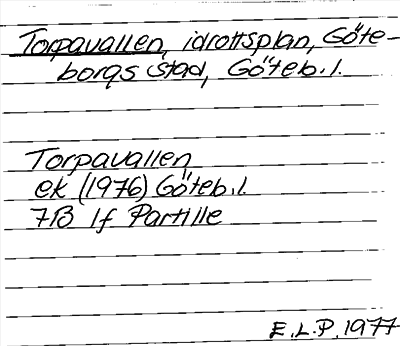 Torpavallen, idrottsplan, Göte-
borgs stad, Göteb.l.
Torpavallen
ek (1976) Göteb.l.
7B 1f Partille
E.L.P. 1977